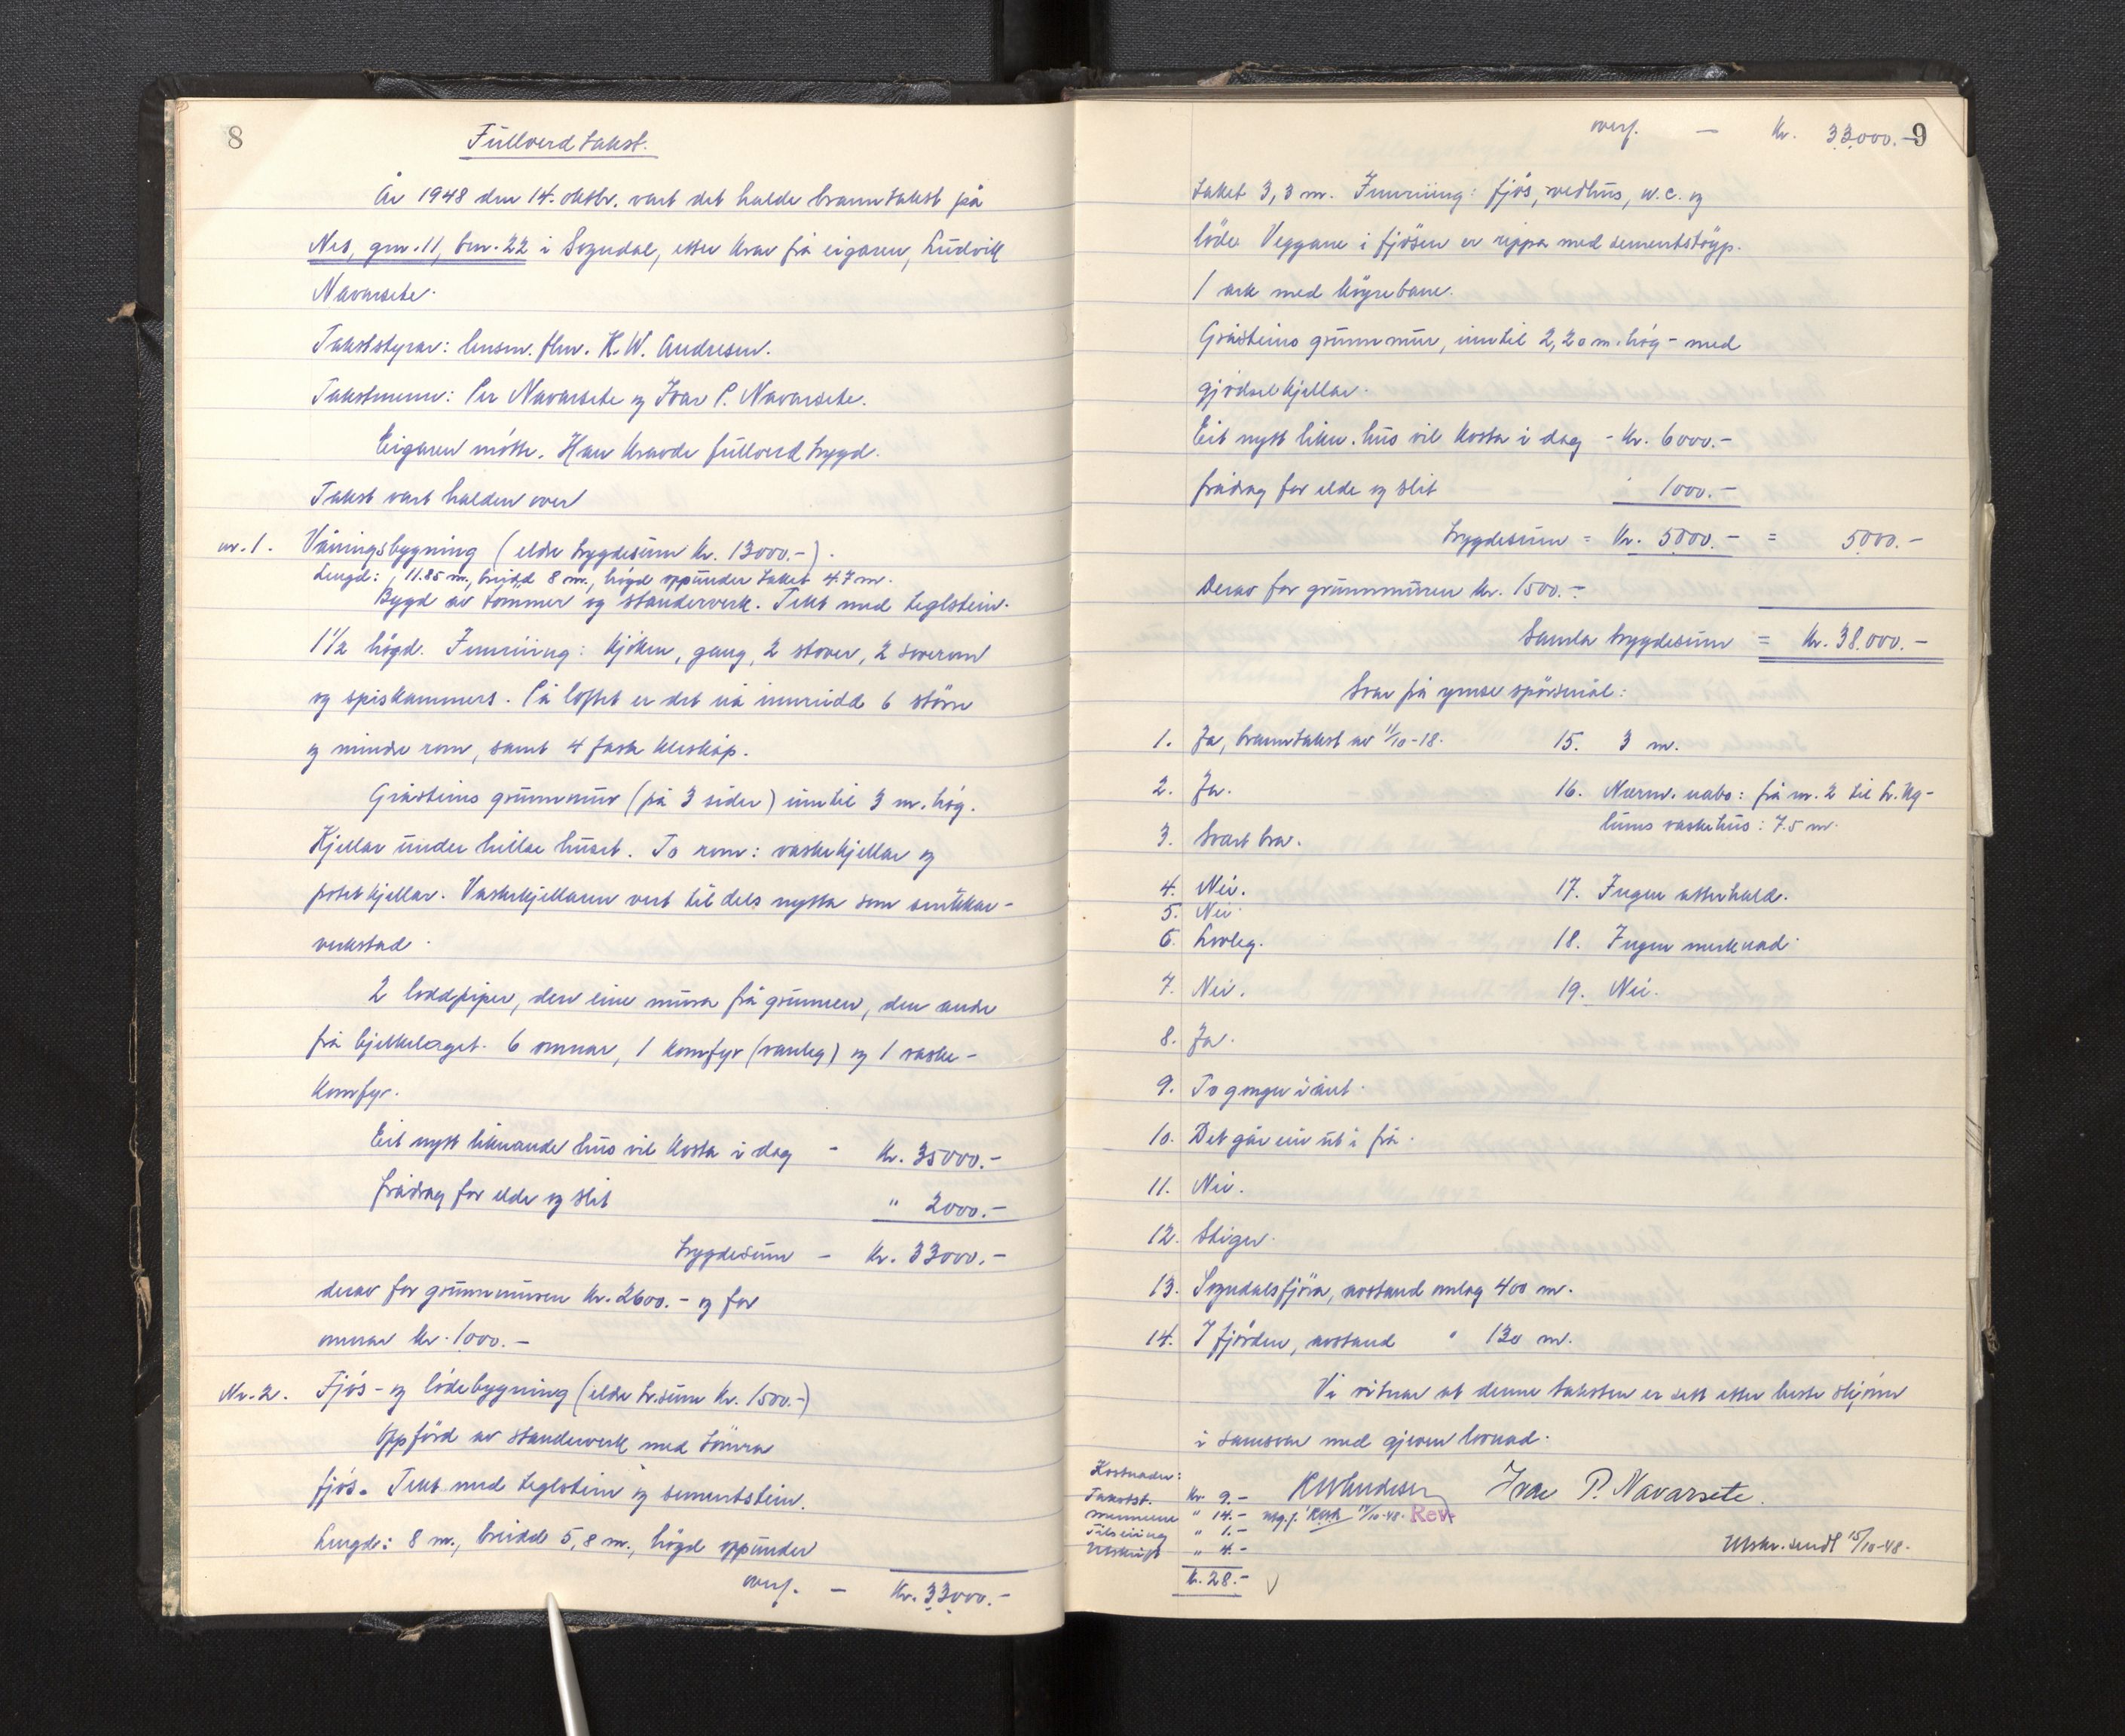 8
Fullverdtakst.
År 1948 den 14. oktbr. vart det halde branntakst på
Nes, gnr. 11, bnr. 22 i Sogndal, etter krav frå eigaren, Ludvik
Navarsete.
Takststyrar: lensm. flm. K. W. Andresen.
Takstmenn: Per Navarsete og Ivar P. Navarsete.
Eigaren møtte. Han kravde fullverd trygd.
Takst vart halden over
nr. 1. Våningsbygning (eldre trygdesum kr. 13000.-).
Lengd: 11.85 m., breidd 8 m., høgd oppunder taket 4.7 m.
Bygd av tømmer og standerverk. Tekt med teglstein.
1 1/2 høgd. Innreiing: kjøken, gang, 2 stover, 2 soverom
og spiskammers. På loftet er det nå innreidd 6 større
og mindre rom, samt 4 faste kleskåp.
Gråsteins grunnmur (på 3 sider) inntil 3 m. høg.
Kjellar under heile huset. To rom: vaskekjellar og
potetkjellar. Vaskekjellaren vert til dels nytta som snikkar-
verkstad.
2 loddpiper, den eine mura frå grunnen, den andre
frå bjelkelaget. 6 omnar, 1 komfyr (vanleg) og 1 vaske-
komfyr.
Eit nytt liknande hus vil kosta i dag - kr. 35000.-
frådrag for elde og slit " 2000.-
trygdesum - kr. 33000.-
derav for grunnmuren kr. 2600.- og for
omnar kr. 1000.-
Nr. 2. Fjøs- og lødebygning (eldre tr.sum kr. 1500.-)
Oppførd av standerverk med tømra
fjøs. Tekt med teglstein og sementstein.
Lengde: 8 m., breidde 5,8 m., høgde oppunder
overf. - kr. 33000.-
overf. - kr. 33000.- 9
taket 3,3 m. Innreiing: fjøs, vedhus, w.c. og
løde. Veggane i fjøsen er rippa med sementstøyp.
1 ark med køyrebane.
Gråsteins grunnmur, inntil 2,20 m. høg - med
gjødselkjellar.
Eit nytt likn. hus vil kosta i dag - kr. 6000.-
frådrag for elde og slit " 1000.-
trygdesum = kr. 5000.- = 5000.-
Derav for grunnmuren kr. 1500.-
Samla trygdesum = kr. 38.000.-
Svar på ymse spørsmål:
1. Ja, branntakst av 11/10-18.
2. Ja.
3. Svært bra.
4. Nei.
5. Nei
6. Lovleg.
7. Nei.
8. Ja.
9. To gonger i året.
10. Det går ein ut i frå.
11. Nei.
12. Stigar.
13. Sogndalsfjøra, avstand omlag 400 m.
14. I fjorden, avstand " 130 m.
15. 3 m.
16. Nærm. nabo: frå nr. 2 til
vaskehus: 7.5 m.
17. Ingen etterhald.
18. Ingen merknad.
19. Nei.
Vi vitnar at denne taksten er sett etter beste skjønn
i samsvar med gjeven lovnad.
Kostnader:
Takstst. kr. 9.-
mennene " 14.-
Tilseiing " 1.-
Utskrift " 4.-
kr. 28.-
KWAndresen Ivar P. Navarsete.
14/10-48. Rev.
Utskr. sendt 15/10-48.